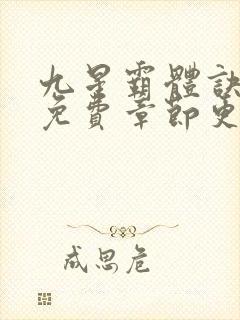 九星霸體訣
免費章節更
成思危